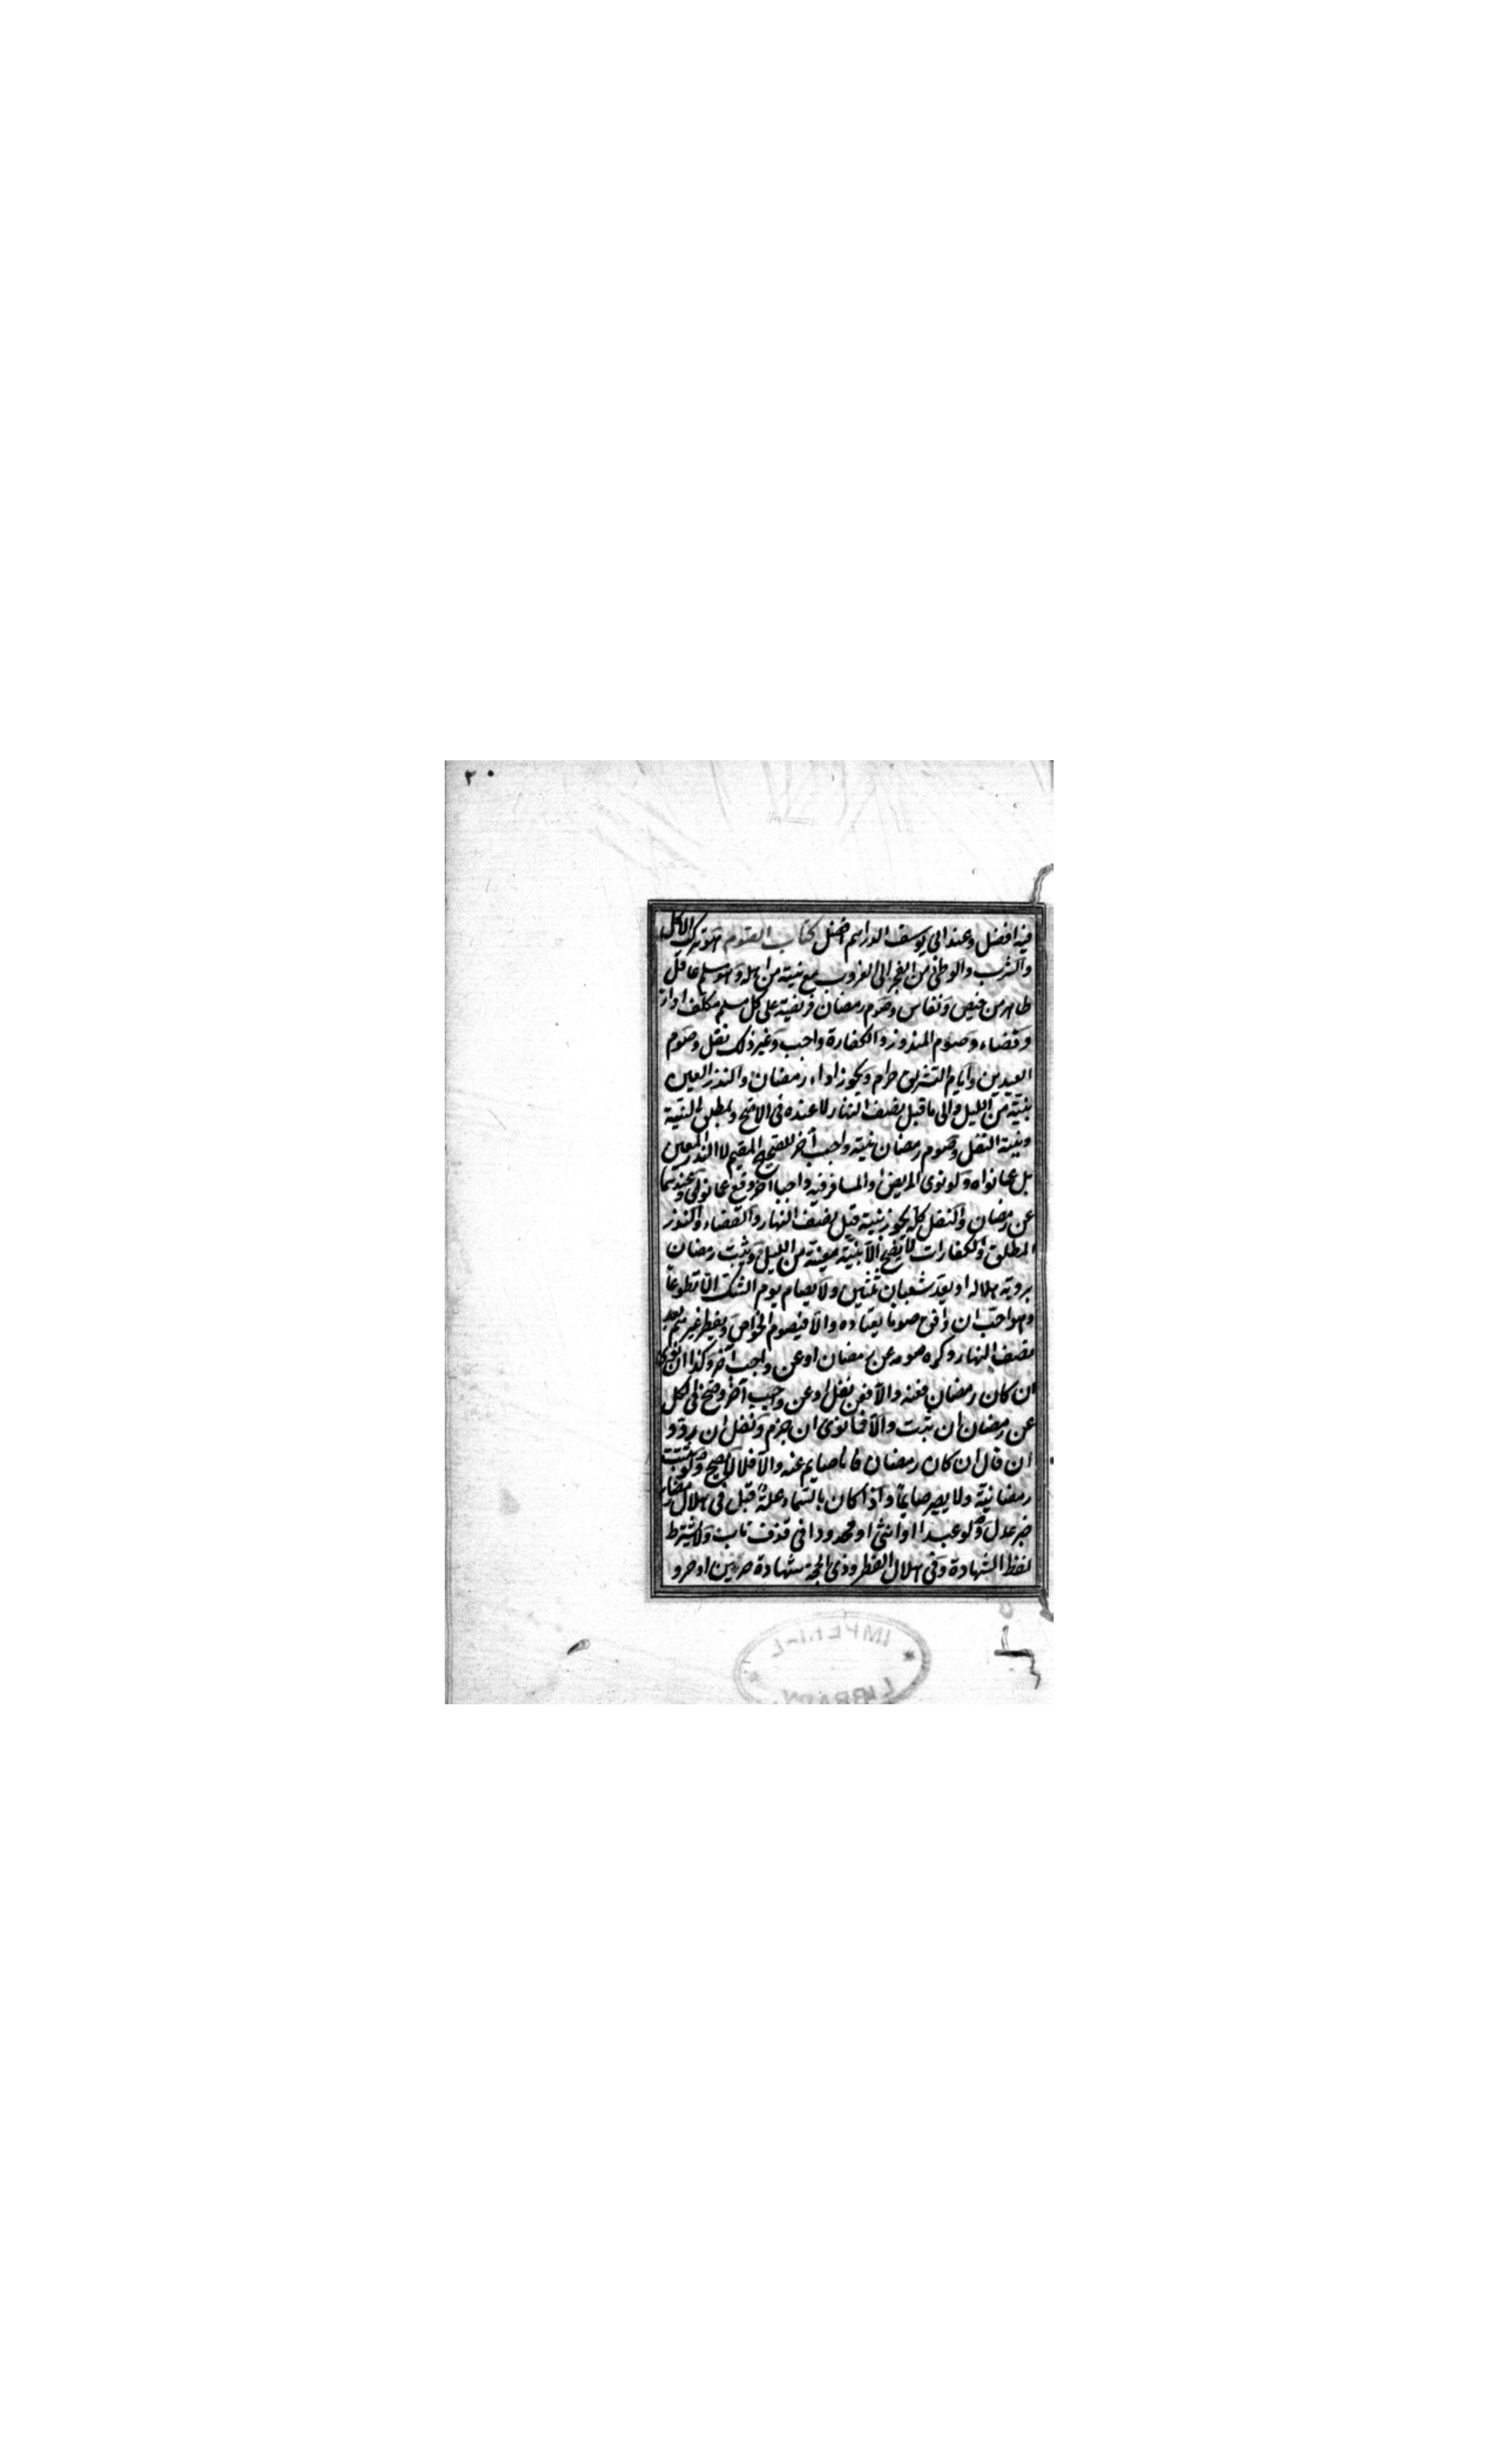 ٢٠
فيه افضل وعند ابى يوسف الدراهم افضل كتاب الصوم هو ترك الاكل
والشرب والوطئ من الفجر الى الغروب مع نية من اهله وهو مسلم عاقل
طاهر من حيض ونفاس وصوم رمضان فريضة على كل مسلم مكلف اداء
وقضاء وصوم المنذور والكفارة واجب وغير ذلك نفل وصوم
العيدين وايام التشريق حرام ويجوز اداء رمضان والنذر المعين
بنية من الليل والى ما قبل نصف النهار لا عنده فى الاصح وبمطلق النية
وبنية النفل وصوم رمضان بنية واجب آخر للصحيح المقيم لا النذر المعين
بل عما نواه ولو نوى المريض او المسافر فيه واجبا آخر وقع عما نوى وعندهما
عن رمضان والنفل كله يجوز بنية قبل نصف النهار والقضاء والنذر
المطلق والكفارات لا يصح الا بنية معينة من الليل ويثبت رمضان
بروية هلاله او بعد شعبان ثلثين ولا يصام يوم الشك الا تطوعا
وهو احب ان وافق صوما يعتاده والا فيصوم الخواص ويفطر غيرهم بعد
نصف النهار وكره صومه عن رمضان او عن واجب آخر وكذا ان نوى
ان كان رمضان فعنه والا فعن نفل او عن واجب آخر وصح فى الكل
عن رمضان ان ثبت والا فما نوى ان جزم ونفل ان ردد و
ان قال ان كان رمضان فانا صايم عنه والا فلا لا يصح ولو ثبتت
رمضانيته ولا يصير صايما واذا كان بالسماء علة قبل فى هلال رمضان
خبر عدل ولو عبدا او انثى او محدودا فى قذف تاب ولا يشترط
لفظ الشهادة وفى هلال الفطر وذى الحجة شهادة حرين او حر و
IMPERIAL
LIBRARY